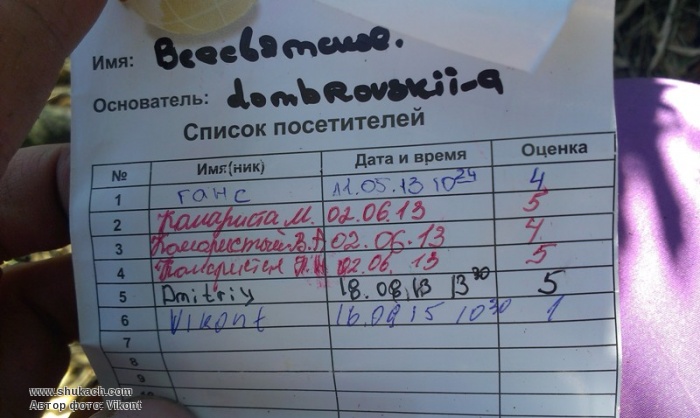 Имя: Всесвятское.
Основатель: dombrovskii-a
Список посетителей
№ Имя(ник) Дата и время Оценка
1 ганс 11.05.13 10 24 4
2 Комариста М. 02.06.13 5
3 02.06.13 4
4 02.06. 13 5
5 Dmitriy 18.08.13 13 30 5
6 Vikont 16.09.15 10 30 1
7
8
9
www.shukach.com
Автор фото: Vikont